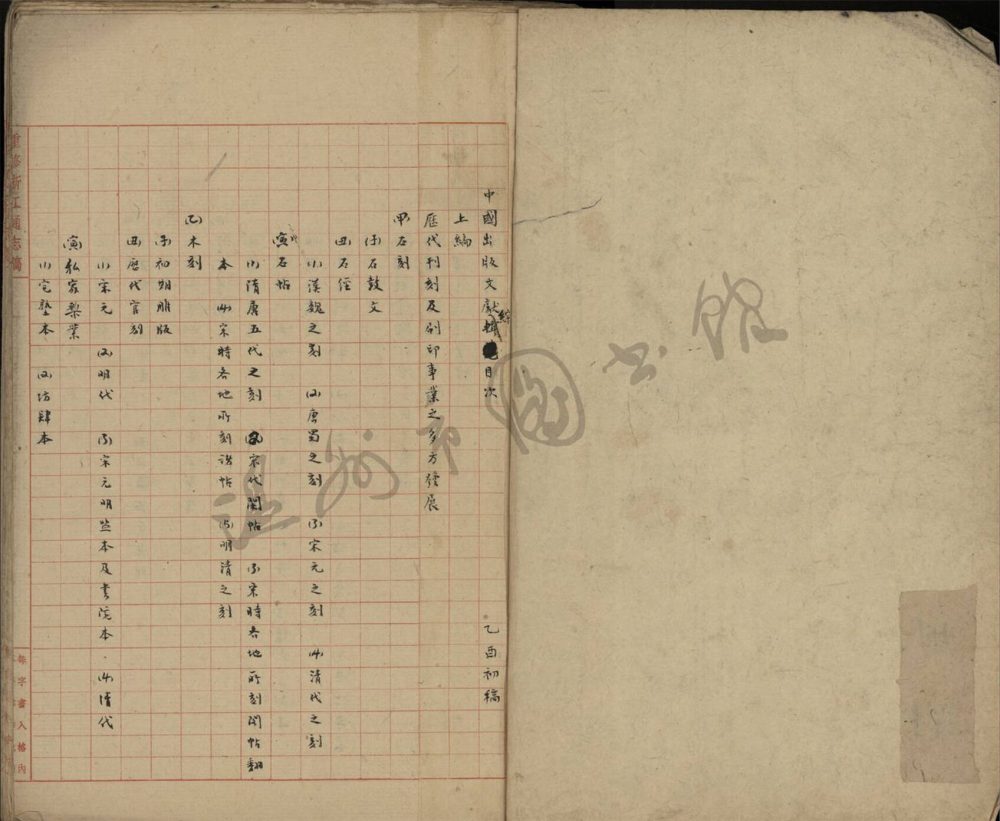 中國出版文獻綜目次 乙酉初稿
上編
歷代刊刻及刷印事業之多方發展
甲石刻
(子)石鼓文
(丑)石經
(1)漢魏之刻 (2)唐蜀之刻 (3)宋元之刻 (4)清代之刻
(寅)石帖
(1)隋唐五代之刻 (2)宋代閣帖 (3)宋時各地所刻閣帖翻
本 (4)宋時各地所刻諸帖 (5)明清之刻
乙木刻
(子)初期雕版
(丑)歷代官刻
(1)宋元 (2)明代 (3)宋元明監本及書院本 (4)清代
(寅)私家梨業
(1)宅塾本 (2)坊肆本
重修浙江通志稿
每字書入格內
溫州市圖書館